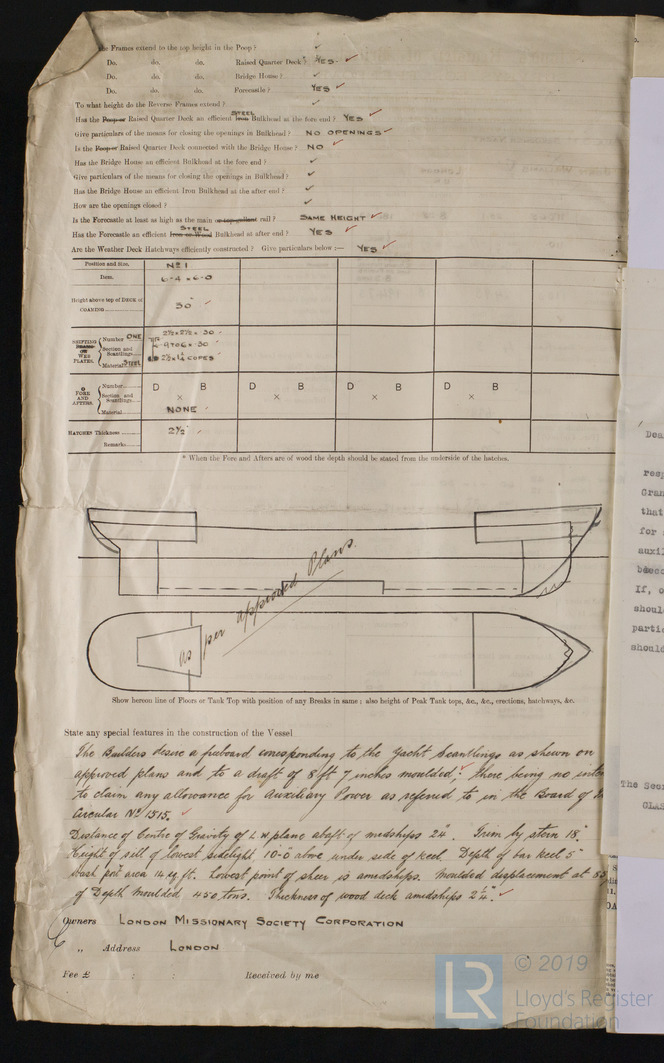 the Frames extend to the top height in the Poop?
Do. do. do. Raised Quarter Deck? YES
Do. do. do. Bridge House?
Do. do. do. Forecastle? YES
To what height do the Reverse Frames extend?
Has the Poop or Raised Quarter Deck an efficient Iron STEEL Bulkhead at the fore end? YES
Give particulars of the means for closing the openings in Bulkhead? NO OPENINGS
Is the Poop or Raised Quarter Deck connected with the Bridge House? NO
Has the Bridge House an efficient Bulkhead at the fore end?
Give particulars of the means for closing the openings in Bulkhead?
Has the Bridge House an efficient Iron Bulkhead at the after end?
How are the openings closed?
Is the Forecastle at least as high as the main or top-gallant rail? SAME HEIGHT
Has the Forecastle an efficient Iron or Wood STEEL Bulkhead at after end? YES
Are the Weather Deck Hatchways efficiently constructed? Give particulars below:— YES
Position and Size. No 1
Item. 6-4 x 6-0
Height above top of DECK of COAMING 30"
SHIFTING BEAMS OR WEB PLATES.
Number ONE
Section and Scantlings
Material STEEL
2½ x 2½ x .30
9706 x .30
2½ x 1¼ COPES
* FORE AND AFTERS.
Number
Section and Scantlings
Material
D B D B D B D B
× × × ×
NONE
HATCHES Thickness 2½"
Remarks
* When the Fore and Afters are of wood the depth should be stated from the underside of the hatches.
as per approved Plans.
Show hereon line of Floors or Tank Top with position of any Breaks in same; also height of Peak Tank tops, &c., &c., erections, hatchways, &c.
State any special features in the construction of the Vessel
The Builders desire a freeboard corresponding to the Yacht Scantlings as shewn on
approved plans and to a draft of 8 ft 7 inches moulded: there being no
to claim any allowance for Auxiliary Power as referred to in the Board of
Circular No 1515.
Distance of Centre of Gravity of L.W. plane abaft of midships 24". Trim by stern 18".
Height of sill of lowest sidelight 10'-0 above under side of keel. Depth of bar keel 5"
wash port area 14 sq. ft. Lowest point of sheer is amidships. Moulded displacement at
of Depth Moulded 450 tons. Thickness of wood deck amidships 2¼".
Owners LONDON MISSIONARY SOCIETY CORPORATION
„ Address LONDON
Fee £ : : Received by me
Dea
resp
Gran
that
for
auxil
If, o
shoul
partic
should
The Sec
GLAS
LR
© 2019
Lloyd's Register
Foundation